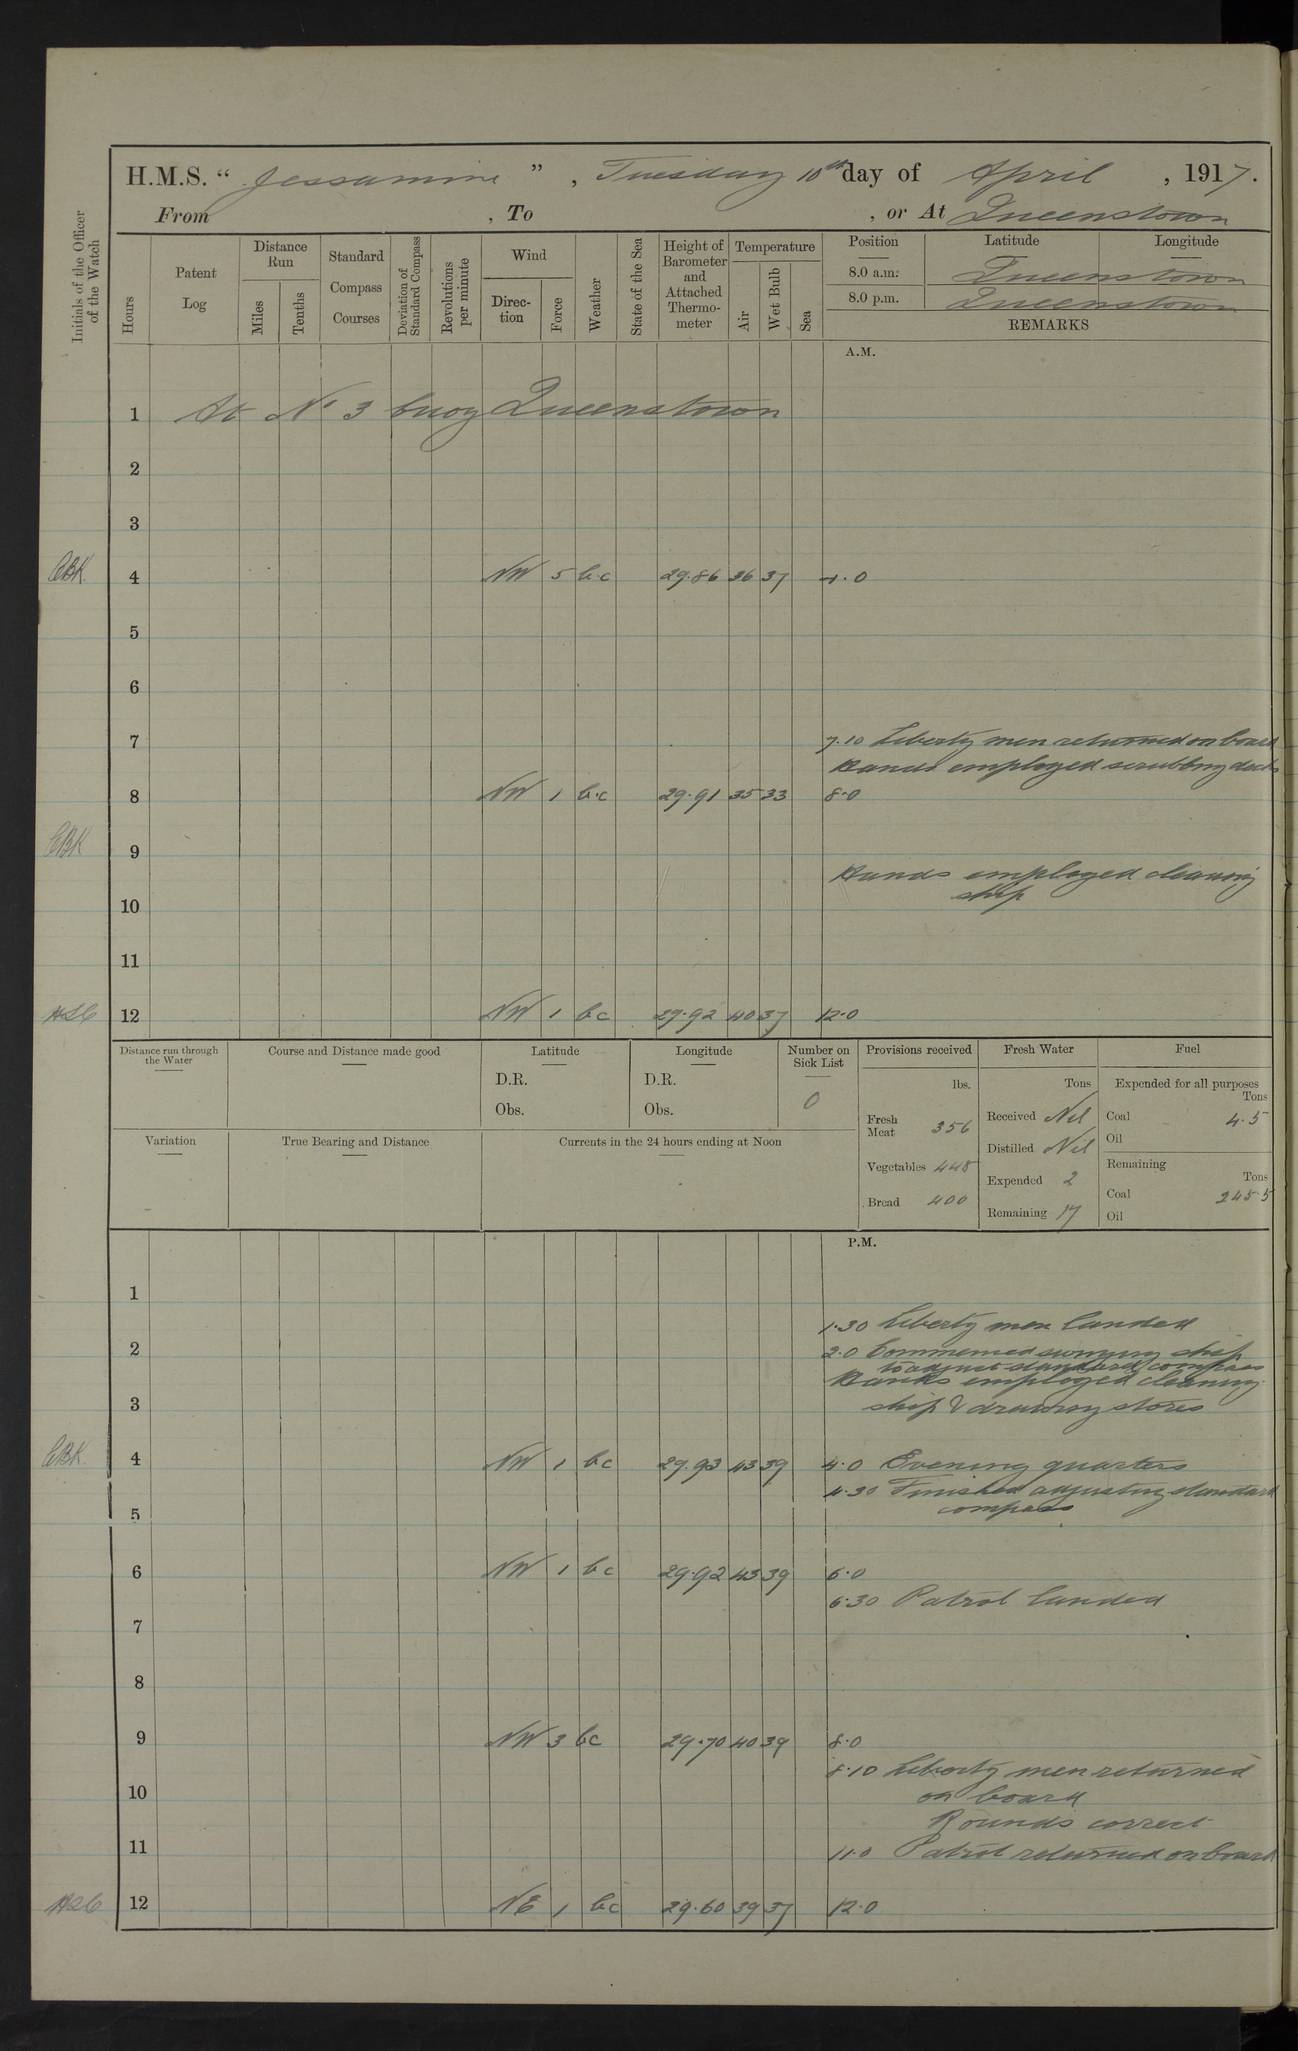 H.M.S. " Jessamine ", Tuesday 10th day of April, 1917.
From , To , or At Queenstown
Initials of the Officer of the Watch
Hours
Patent Log
Distance Run
Miles
Tenths
Standard Compass Courses
Deviation of Standard Compass
Revolutions per minute
Wind
Direc-tion
Force
Weather
State of the Sea
Height of Barometer and Attached Thermo-meter
Temperature
Air
Wet Bulb
Sea
Position
Latitude
Longitude
8.0 a.m. Queenstown
8.0 p.m. Queenstown
REMARKS
A.M.
1 At No 3 buoy Queenstown
2
3
4 NW 5 b.c 29.86 36 37 4.0
5
6
7 7.10 Liberty men returned on board
Hands employed scrubbing decks
8 NW 1 b.c 29.91 35 33 8.0
9
Hands employed cleaning
ship
10
11
12 NW 1 bc 29.92 40 37 12.0
Distance run through the Water
Course and Distance made good
Latitude
D.R.
Obs.
Longitude
D.R.
Obs.
Number on Sick List
0
Provisions received
lbs.
Fresh Meat 356
Vegetables 448
Bread 400
Fresh Water
Tons
Received Nil
Distilled Nil
Expended 2
Remaining 17
Fuel
Expended for all purposes
Tons
Coal 4.5
Oil
Remaining
Tons
Coal 245.5
Oil
Variation
True Bearing and Distance
Currents in the 24 hours ending at Noon
P.M.
1
1.30 Liberty men landed
2 2.0 Commenced swinging ship
to adjust standard compass
Hands employed cleaning
3 ship & drawing stores
4 NW 1 bc 29.93 43 39 4.0 Evening quarters
4.30 Finished adjusting standard
compass
5
6 NW 1 bc 29.92 43 39 6.0
6.30 Patrol landed
7
8
9 NW 3 bc 29.70 40 39 8.0
8.10 Liberty men returned
10 on board
Rounds correct
11 11.0 Patrol returned on board
12 NE 1 bc 29.60 39 37 12.0